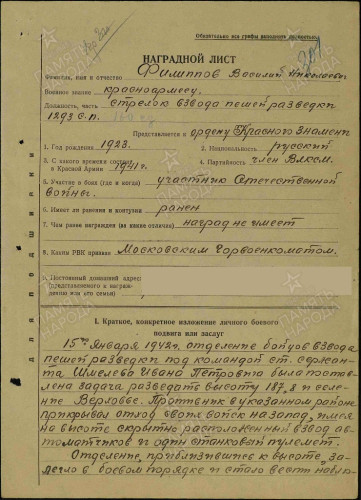 Обязательно все графы наградного листа
НАГРАДНОЙ ЛИСТ
Фамилия, имя и отчество Филиппов Василий Николаевич
Военное звание красноармеец
Должность, часть стрелок взвода пешей разведки
1293 с.п.
Представляется к ордену „Красного Знамени“
1. Год рождения 1923. 2. Национальность русский
3. С какого времени состоит в Красной Армии 1941 г. 4. Партийность член ВЛКСМ.
5. Участие в боях (где и когда) участник Отечественной
войны.
6. Имеет ли ранения и контузии ранен
7. Чем ранее награжден (за какие отличия) наград не имеет
8. Каким РВК призван Московским Горвоенкоматом.
9. Постоянный домашний адрес
(представляемого к награж-
дению или его семьи)
I. Краткое, конкретное изложение личного боевого
подвига или заслуг
15го Января 1942г. отделение бойцов взвода
пешей разведки под командой ст. сержан-
та Шмелева Ивана Петровича была постав-
лена задача разведать высоту 187,8 и селе-
ние Верховье. Противник в указанном районе
прикрывал отход своих войск на запад, имея
на высоте скрытно расположенный взвод ав-
томатчиков и один станковый пулемет.
Отделение, приблизившись к высоте, за-
легло в боевом порядке и стало вести наблю-